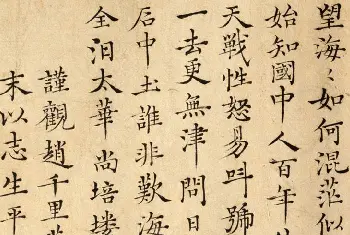 望海〻如何混茫似
始知國中人百年
天戰性怒易叫號
一去更無津問日
后中土誰非歎海
全汨太華尚培塿
謹觀趙千里
末以志生平